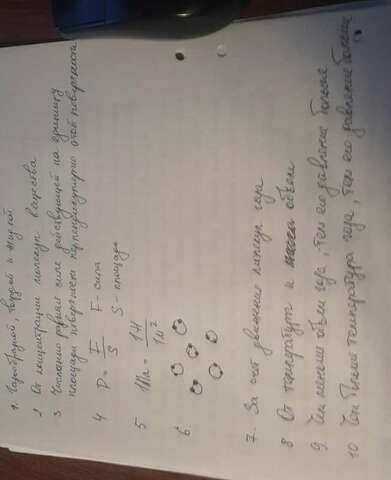 1. Газообразный, твердый и жидкий
2 От концентрации молекул вещества
3 Численно равный силе действующей на единицу
площади поверхности перпендикулярно этой поверхности
4 P = F/S F - сила
S - площадь
5 1Па = 1Н/1м²
6
7. За счёт движения молекул газа
8 От температуры и объем
9 Чем меньше объем газа, тем его давление больше
10 Чем больше температура газа, тем его давление больше